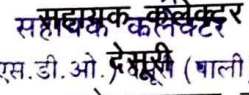 सहायक कलेक्टर
सहायक कलेक्टर
देसूरी
एस.डी.ओ. (पाली)